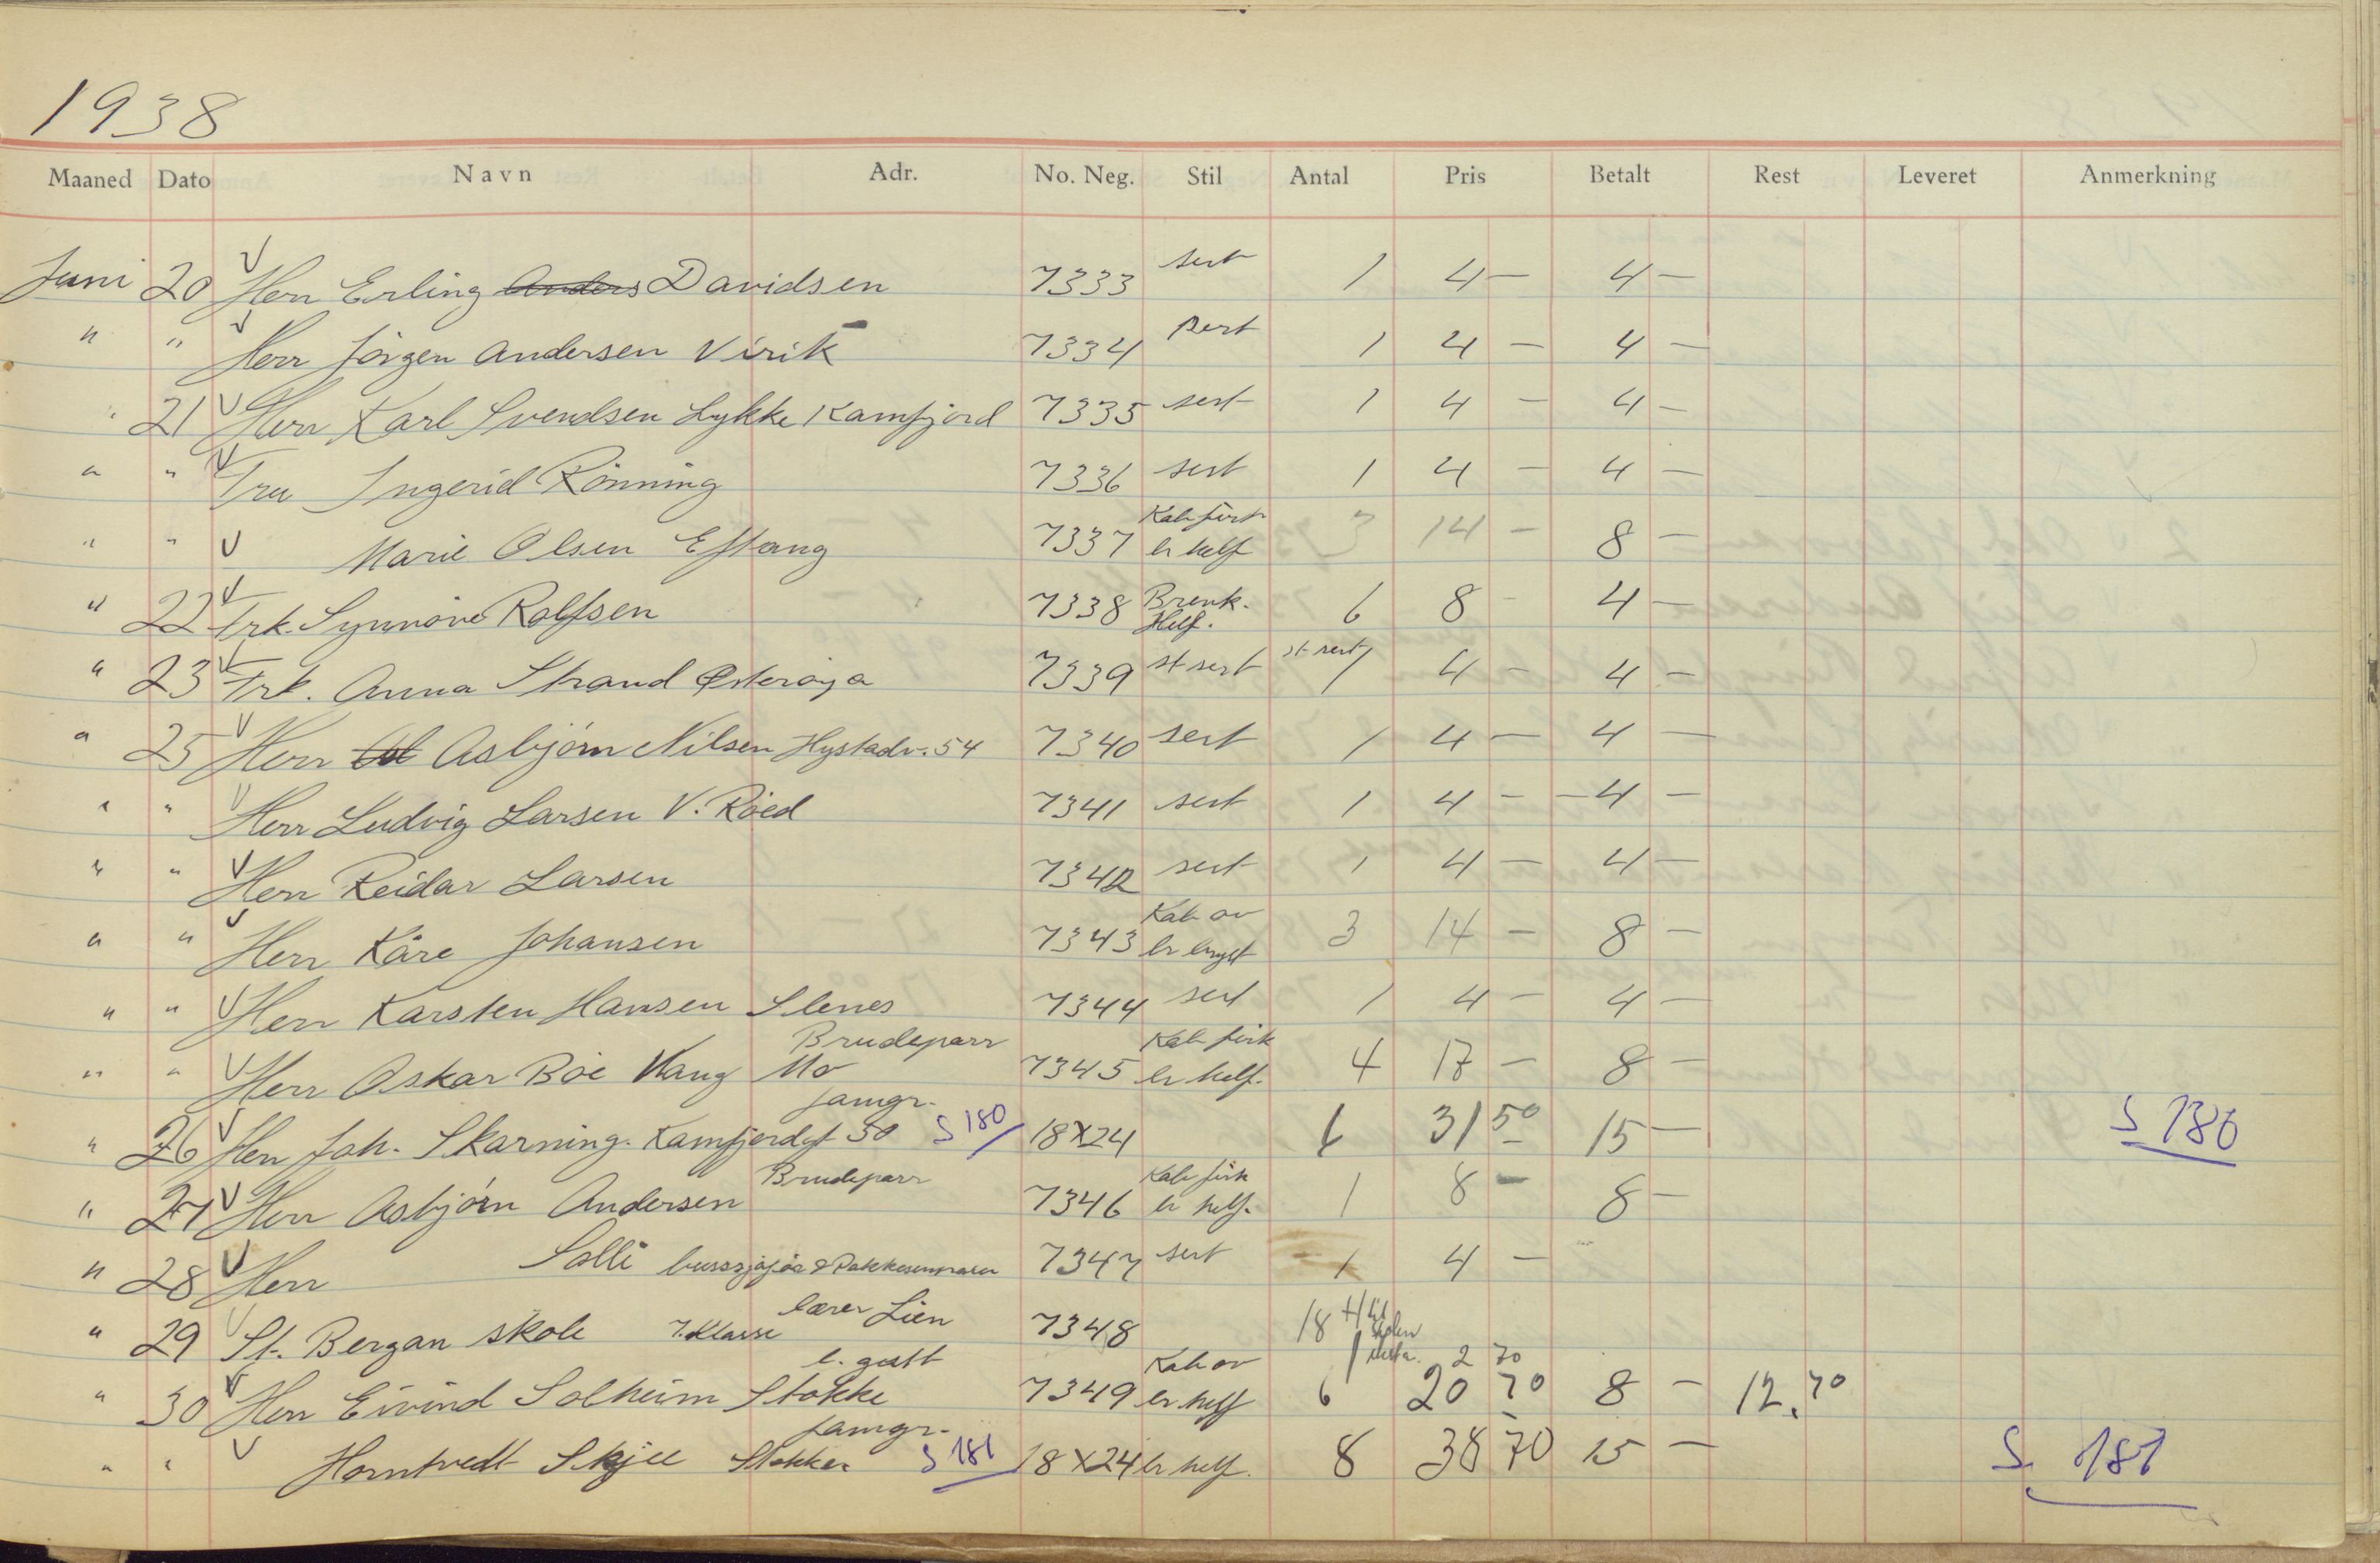 1938
Maaned Dato Navn Adr. No. Neg. Stil Antal Pris Betalt Rest Leveret Anmerkning
Juni 20 V Herr Erling Anders Davidsen 7333 sert 1 4 — 4 —
" " V Herr Jörgen Andersen Virik 7334 sert 1 4 — 4 —
" 21 V Herr Karl Svendsen Lykke Kamfjord 7335 sert 1 4 — 4 —
" " V Fru Ingerid Rönning 7336 sert 1 4 — 4 —
" " V Marie Olsen Eftang 7337 Kab helf 3 14 — 8 —
" 22 V Frk. Synnöve Rolfsen 7338 Brevk. Helf. 6 8 - 4 —
" 23 V Frk. Anna Strand Österöya 7339 st sert st sert 1 4 — 4 —
" 25 V Herr Asbjörn Nilsen Hystadv. 54 7340 sert 1 4 — 4 —
" " V Herr Ludvig Larsen V. Röed 7341 sert 1 4 — — 4 —
" " V Herr Reidar Larsen 7342 sert 1 4 — 4 —
" " V Herr Kåre Johansen 7343 Kab ov br bryst 3 14 — 8 —
" " V Herr Karsten Hansen Slenes 7344 sert 1 4 — 4 —
Brudeparr
" " V Herr Oskar Böe Vang Mo 7345 Kab br helf. 4 17 — 8 —
famgr.
" 26 V Herr Joh. Skarning. Kamfjordgt 50 S 180 18X24 6 31 50 15 — S 180
Brudeparr
" 27 V Herr Asbjörn Andersen 7346 Kab br helf. 1 8 — 8 —
" 28 V Herr Solli 7347 sert 1 4 —
" 29 V St. Bergan skole 7. Klasse lærer Lien 7348 18 + 1 til skolen 1
2 70
" 30 V Herr Eivind Solheim Stokke 7349 Kab ov br helf 6 20 70 8 — 12.70
famgr.
" " V Horntvedt Skjee Stokke S 181 18X24 br helf. 8 38 70 15 — S. 181